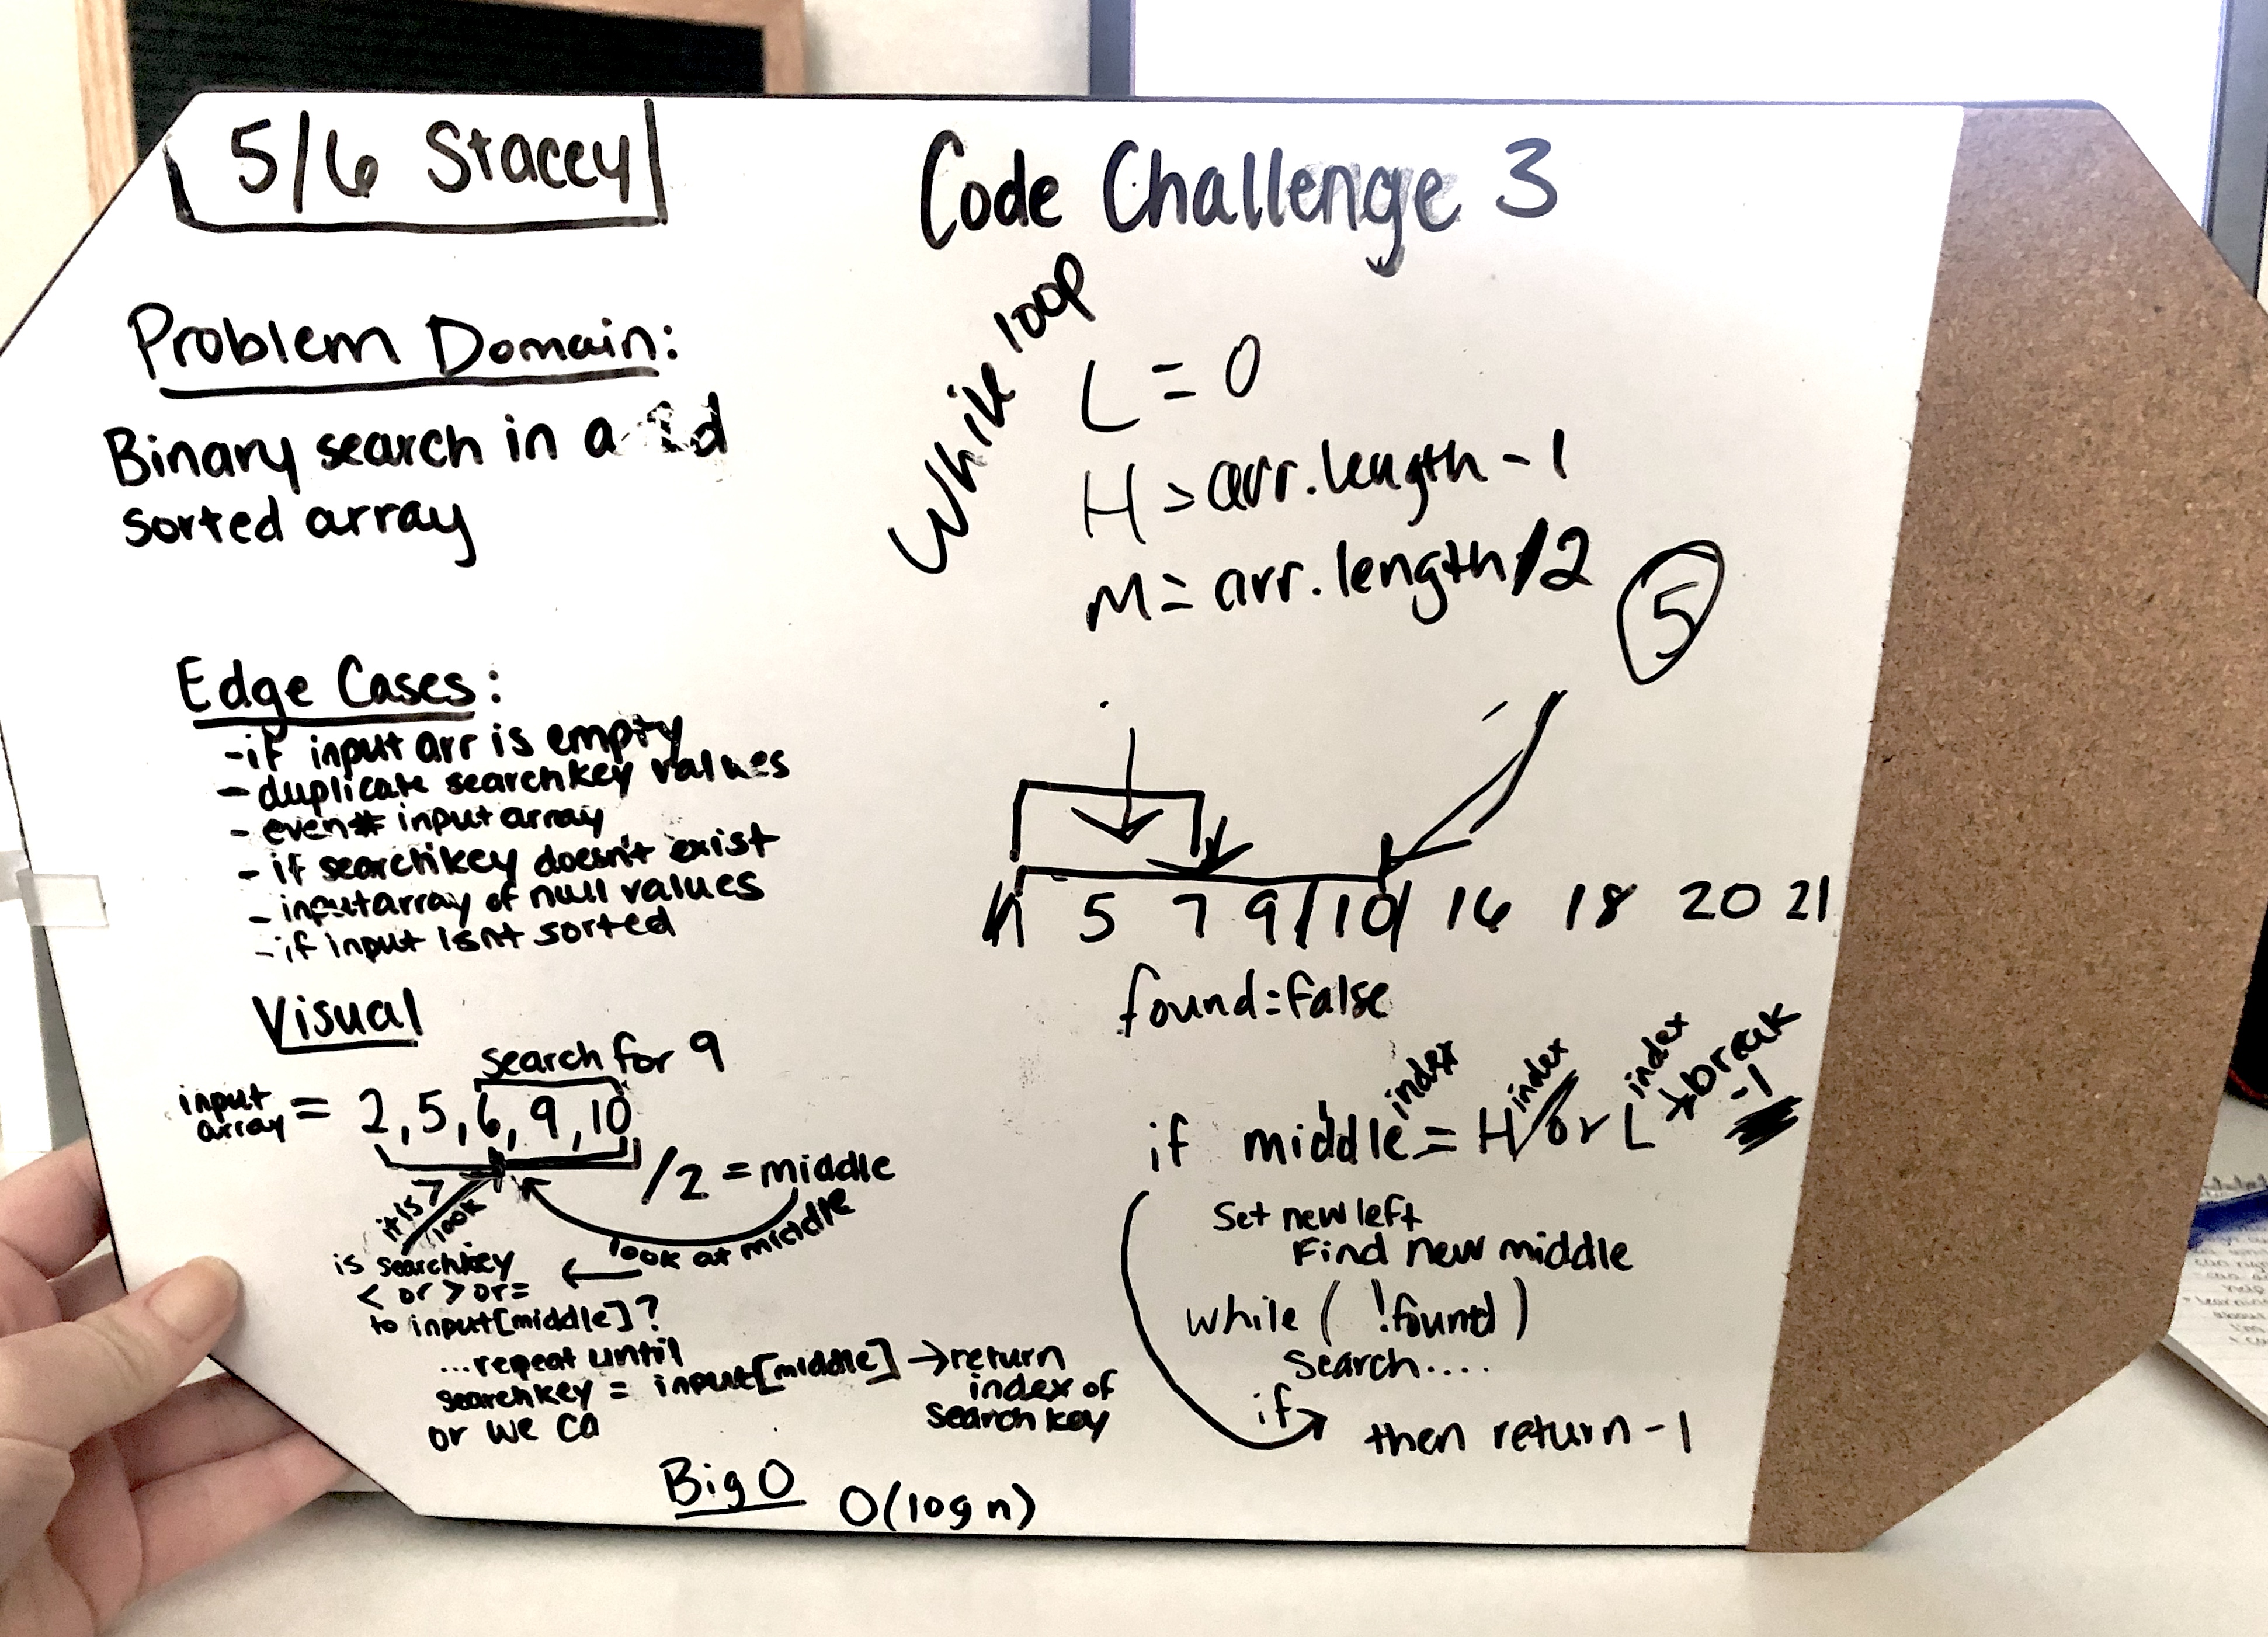 5/6 Stacey
Code Challenge 3
Problem Domain:
Binary search in a 1d
sorted array
Edge Cases:
-if input arr is empty
- duplicate searchkey values
- even# input array
- if searchkey doesn't exist
- input array of null values
- if input isnt sorted
Visual
search for 9
input
array = 2, 5, 6, 9, 10
/2 = middle
look at middle
it is
look
is searchkey
< or > or =
to input[middle]?
...repeat until
searchkey = input[middle] → return
index of
search key
or we ca
Big O O(log n)
While loop
L = 0
H = arr.length - 1
M = arr.length/2
5
5 7 9 10 16 18 20 21
found = false
if middle index = H index or L index → break
-1
Set new left
Find new middle
while ( !found )
search....
if
then return -1